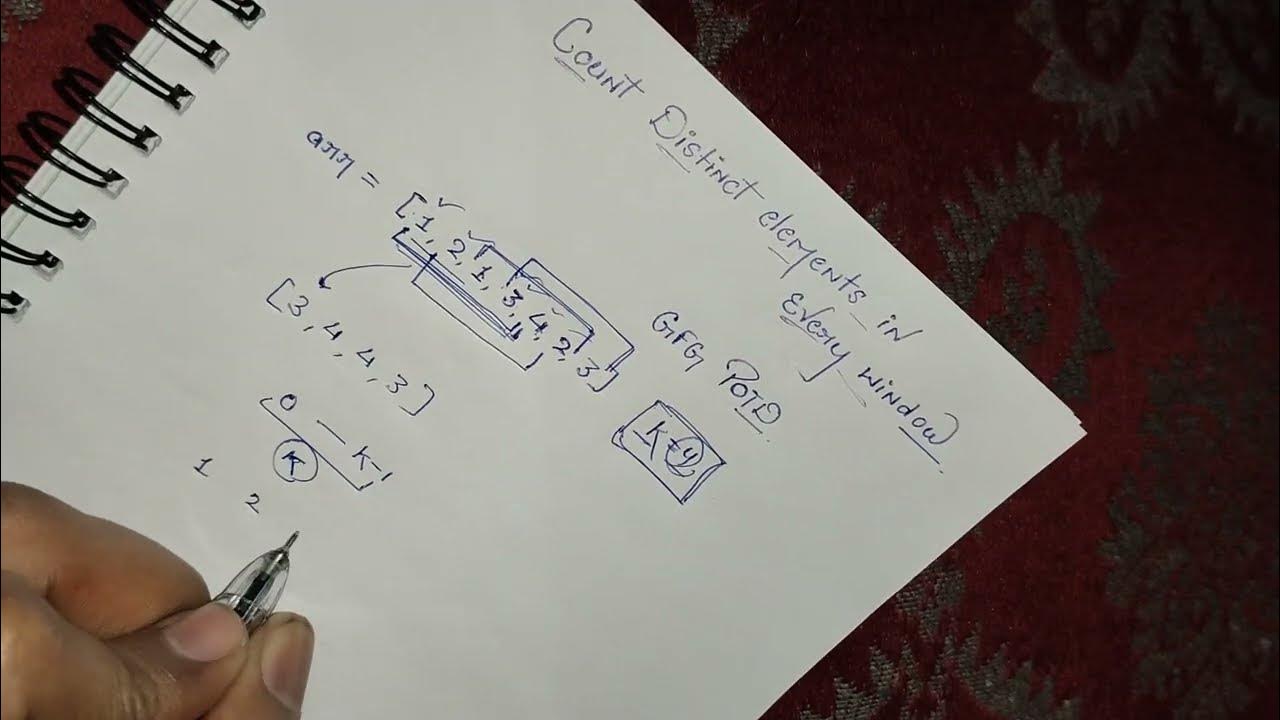 Count Distinct elements in
Every window
GFG POTD.
arr = [1, 2, 1, 3, 4, 2, 3]
[3, 4, 4, 3]
0 — K-1
K
1 2